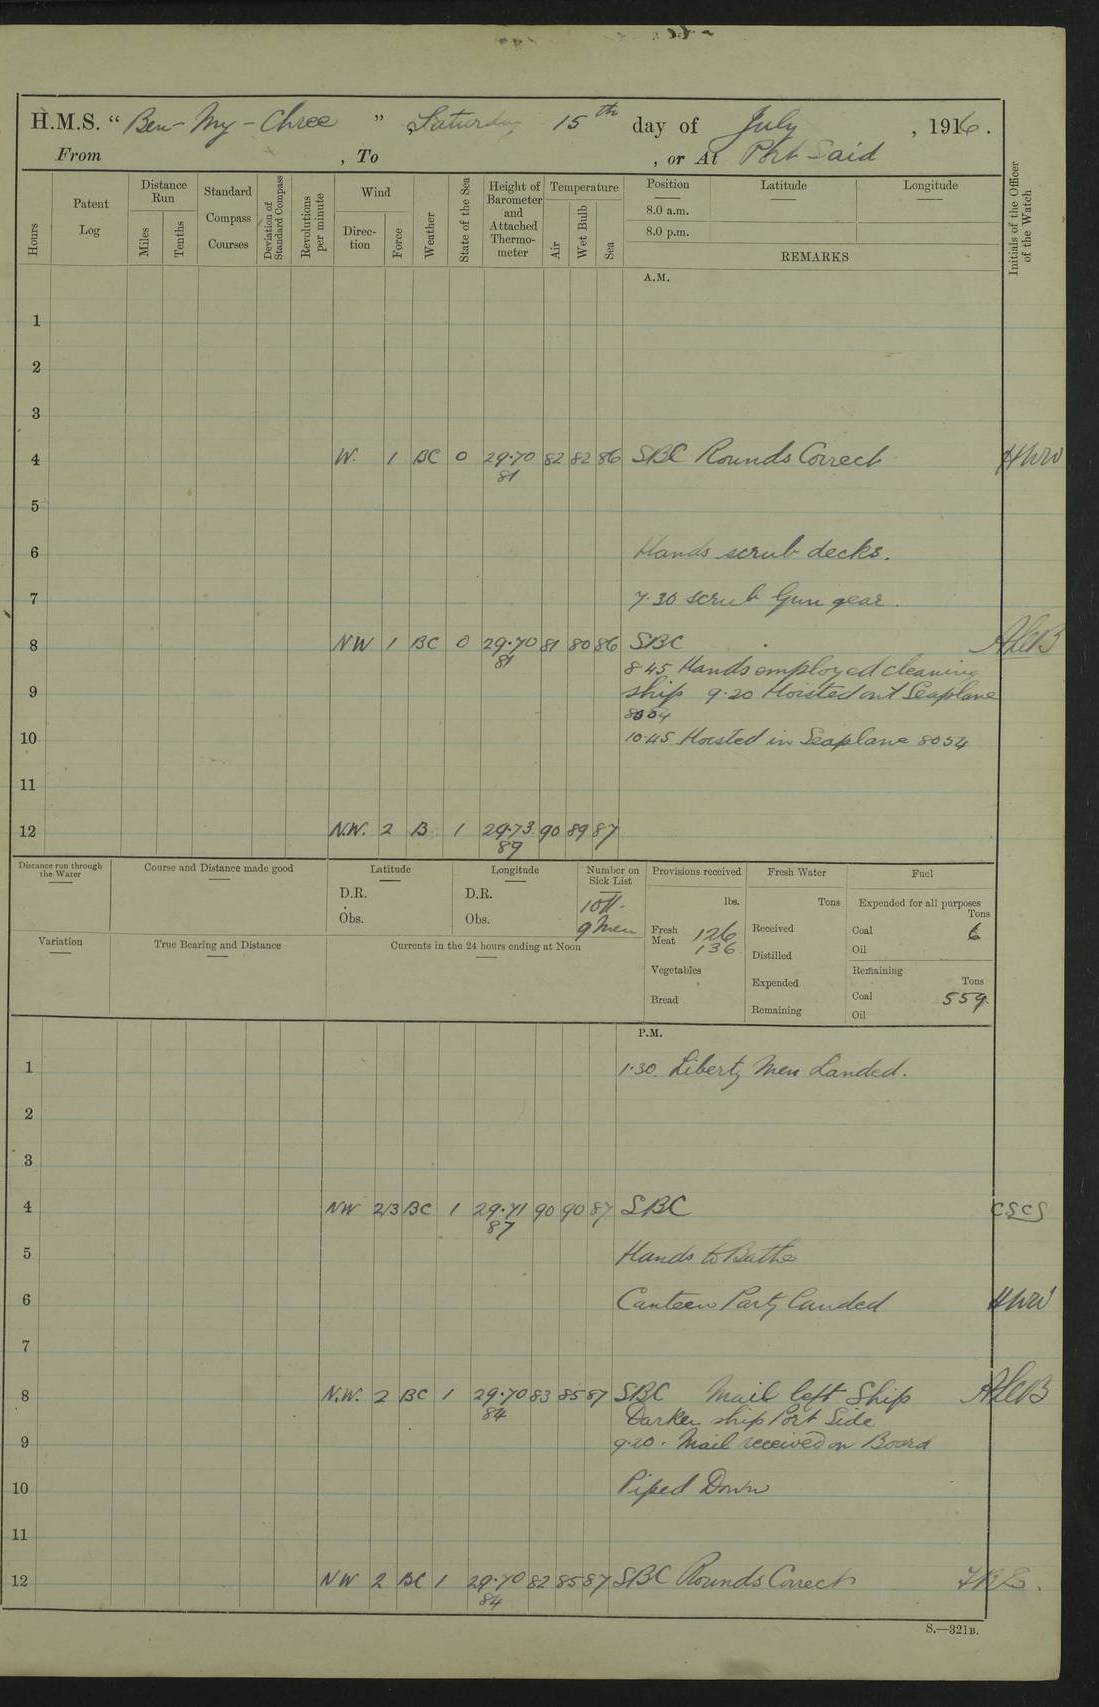 H.M.S. "Ben-My-Chree", Saturday 15th day of July, 1916.
From , To , or At Port Said
Hours
Patent Log
Distance Run
Miles
Tenths
Standard Compass Courses
Deviation of Standard Compass
Revolutions per minute
Wind
Direction
Force
Weather
State of the Sea
Height of Barometer and Attached Thermometer
Temperature
Air
Wet Bulb
Sea
Position Latitude Longitude
8.0 a.m.
8.0 p.m.
REMARKS
Initials of the Officer of the Watch
A.M.
1
2
3
4 W. 1 BC 0 29.70 82 82 86 SBC Rounds Correct HWW
81
5
6 Hands scrub decks.
7 7.30 scrub Gun gear.
8 NW 1 BC 0 29.70 81 80 86 SBC
81
8.45 Hands employed cleaning
9 ship 9.20 Hoisted out Seaplane
8054
10 10.45 Hoisted in Seaplane 8054
11
12 N.W. 2 B 1 29.73 90 89 87
89
Distance run through the Water
Course and Distance made good
Latitude
D.R.
Obs.
Longitude
D.R.
Obs.
Number on Sick List
1 Off.
9 Men
Provisions received
lbs.
Fresh Meat 126
136
Vegetables
Bread
Fresh Water
Tons
Received
Distilled
Expended
Remaining
Fuel
Expended for all purposes
Tons
Coal 6
Oil
Remaining
Tons
Coal 559
Oil
Variation
True Bearing and Distance
Currents in the 24 hours ending at Noon
P.M.
1 1.30. Liberty Men Landed.
2
3
4 NW 2/3 BC 1 29.71 90 90 87 SBC CSCS
87
5 Hands to Bathe
6 Canteen Party landed HWW
7
8 N.W. 2 BC 1 29.70 83 85 87 SBC Mail left Ship
84
Darken ship Port Side
9 9.20. Mail received on Board
10 Piped Down
11
12 NW 2 BC 1 29.70 82 85 87 SBC Rounds Correct
84
S.—321B.